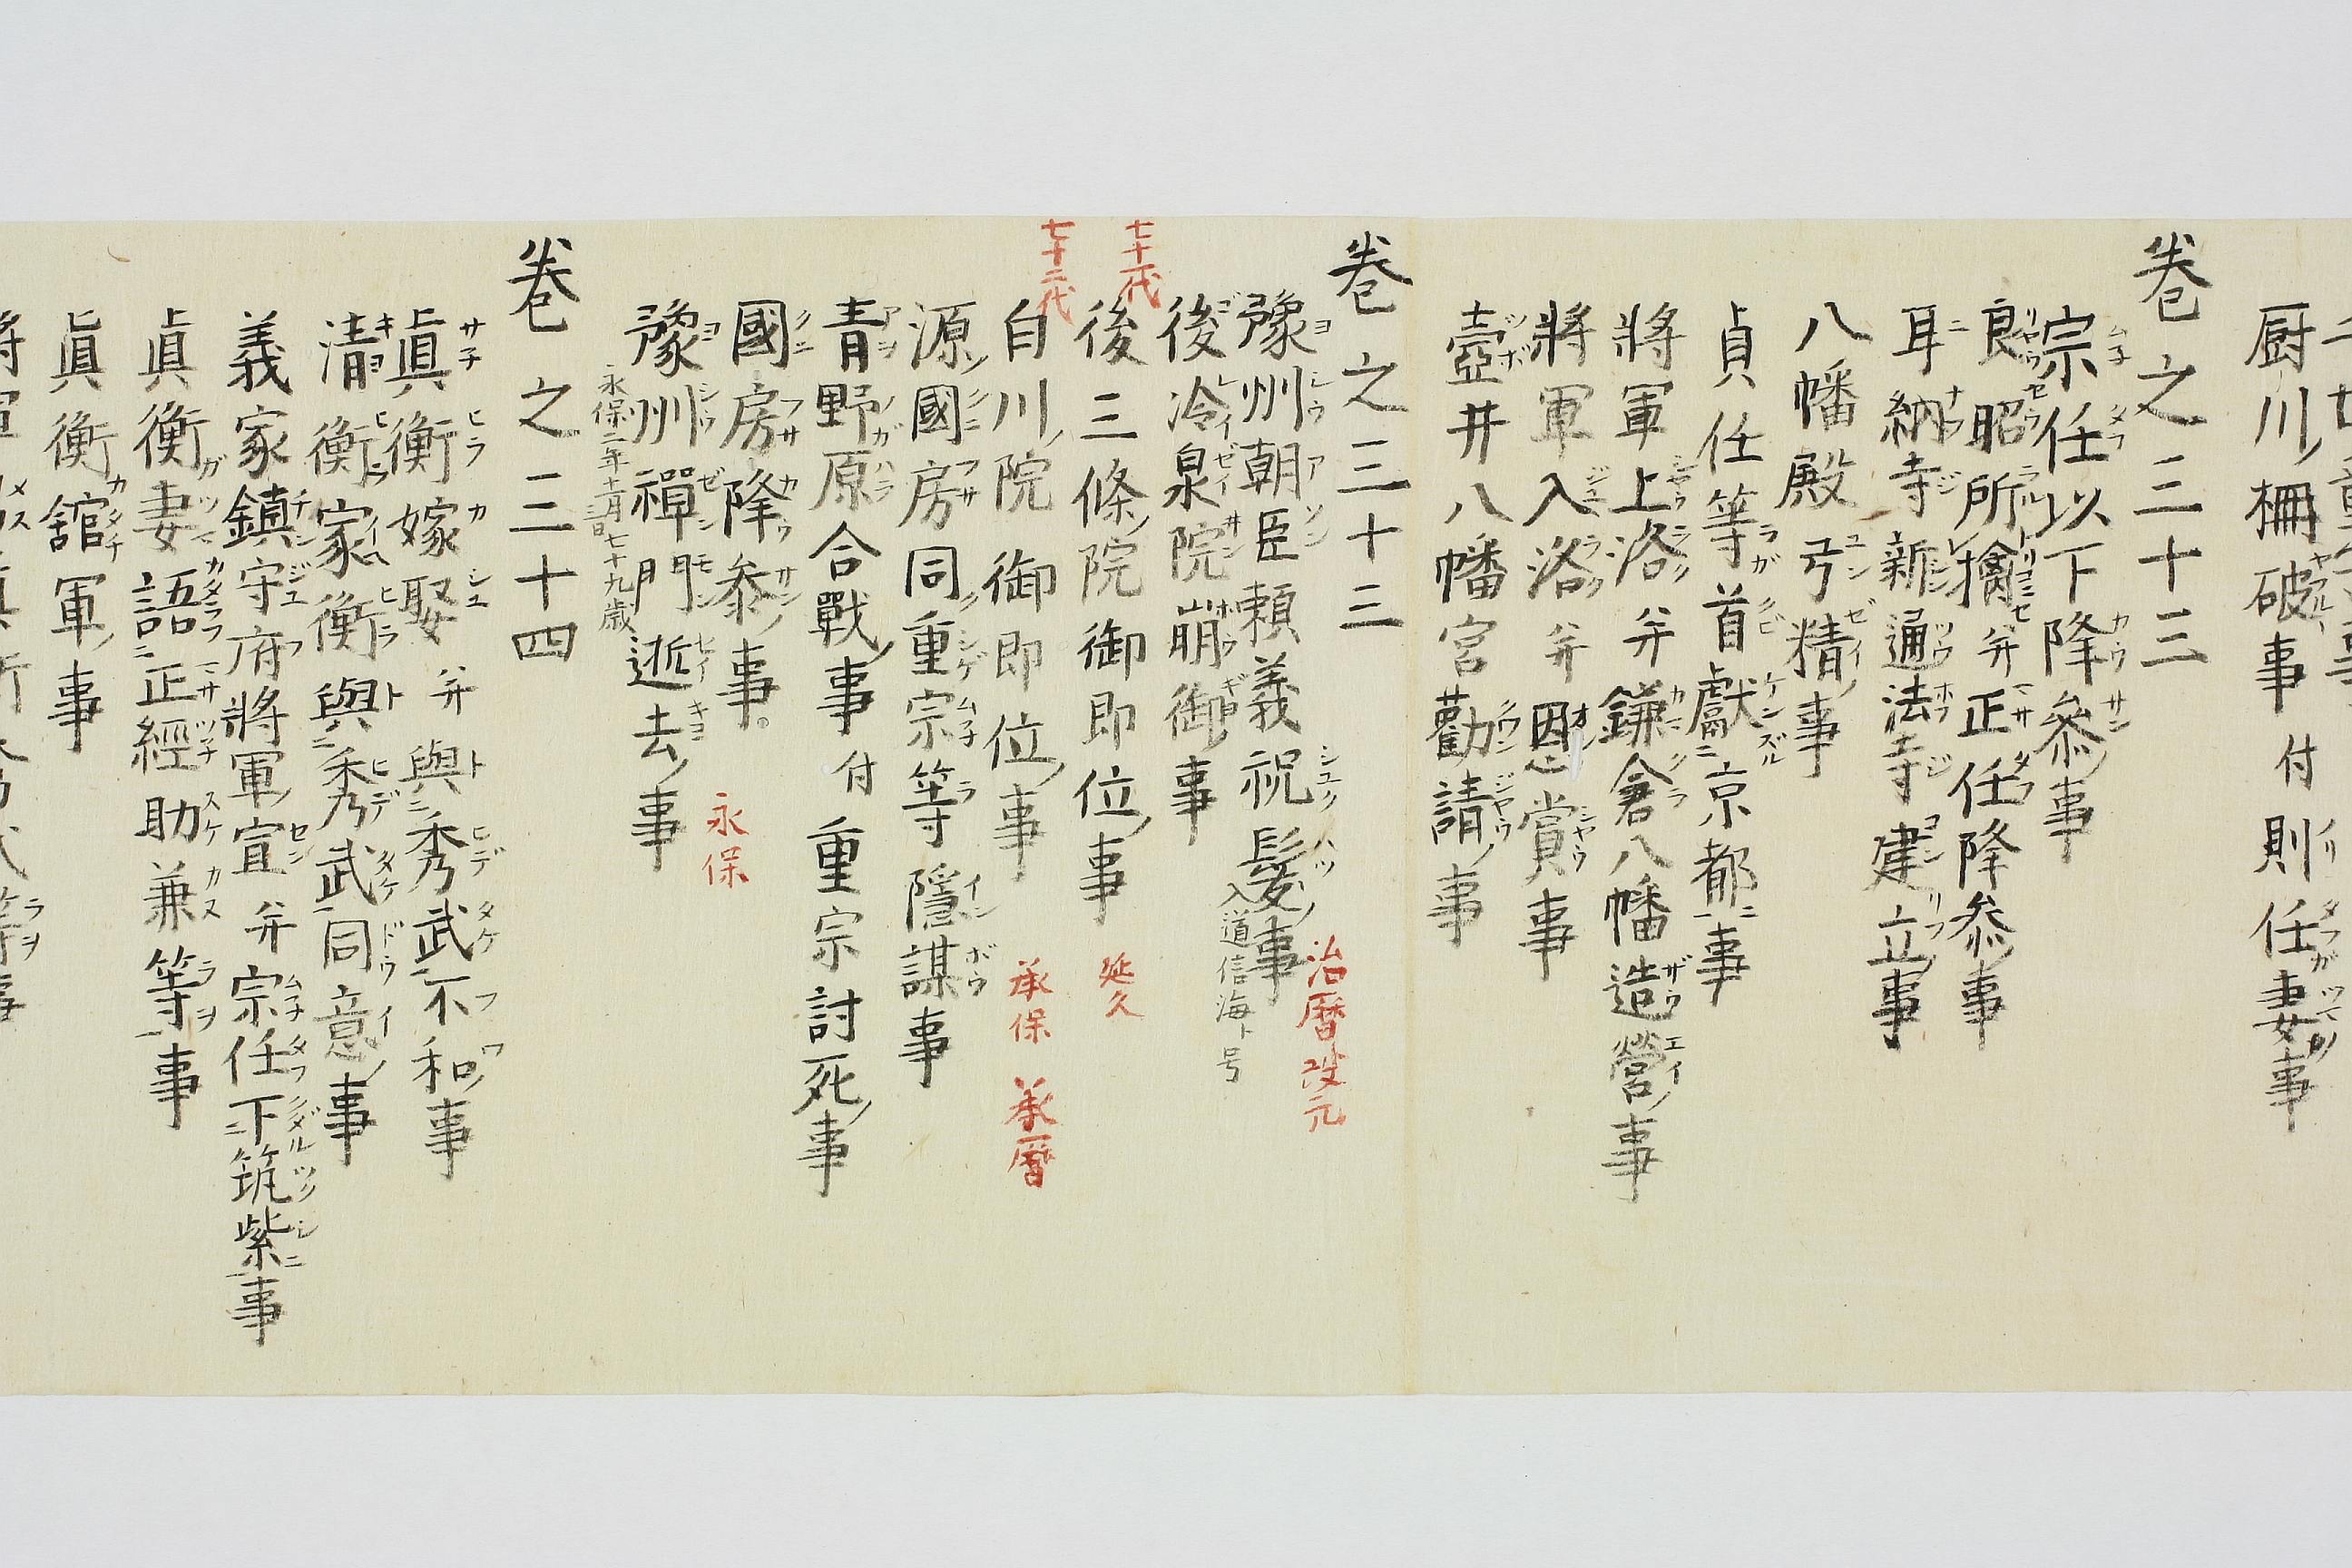 厨川柵破事付則任妻事
卷之三十三
宗任以下降參事
良昭所擒并正任降參事
耳納寺新通法寺建立事
八幡殿弓精事
貞任等首獻京都事
將軍上洛并鎌倉八幡造營事
將軍入洛并恩賞事
壺井八幡宮勸請事
卷之三十三
豫州朝臣賴義祝髮事 治曆改元
入道信海ト号
後冷泉院崩御事
七十一代
後三條院御即位事 延久
七十二代
白川院御即位事 承保 承曆
源國房同重宗等隱謀事
青野原合戰事付重宗討死事
國房降參事 永保
豫州禪門逝去事
永保二年十一月三日七十九歳
卷之三十四
眞衡嫁娶并與秀武不和事
清衡家衡與秀武同意事
義家鎮守府將軍宣并宗任下筑紫事
眞衡妻語正經助兼等事
眞衡舘軍事